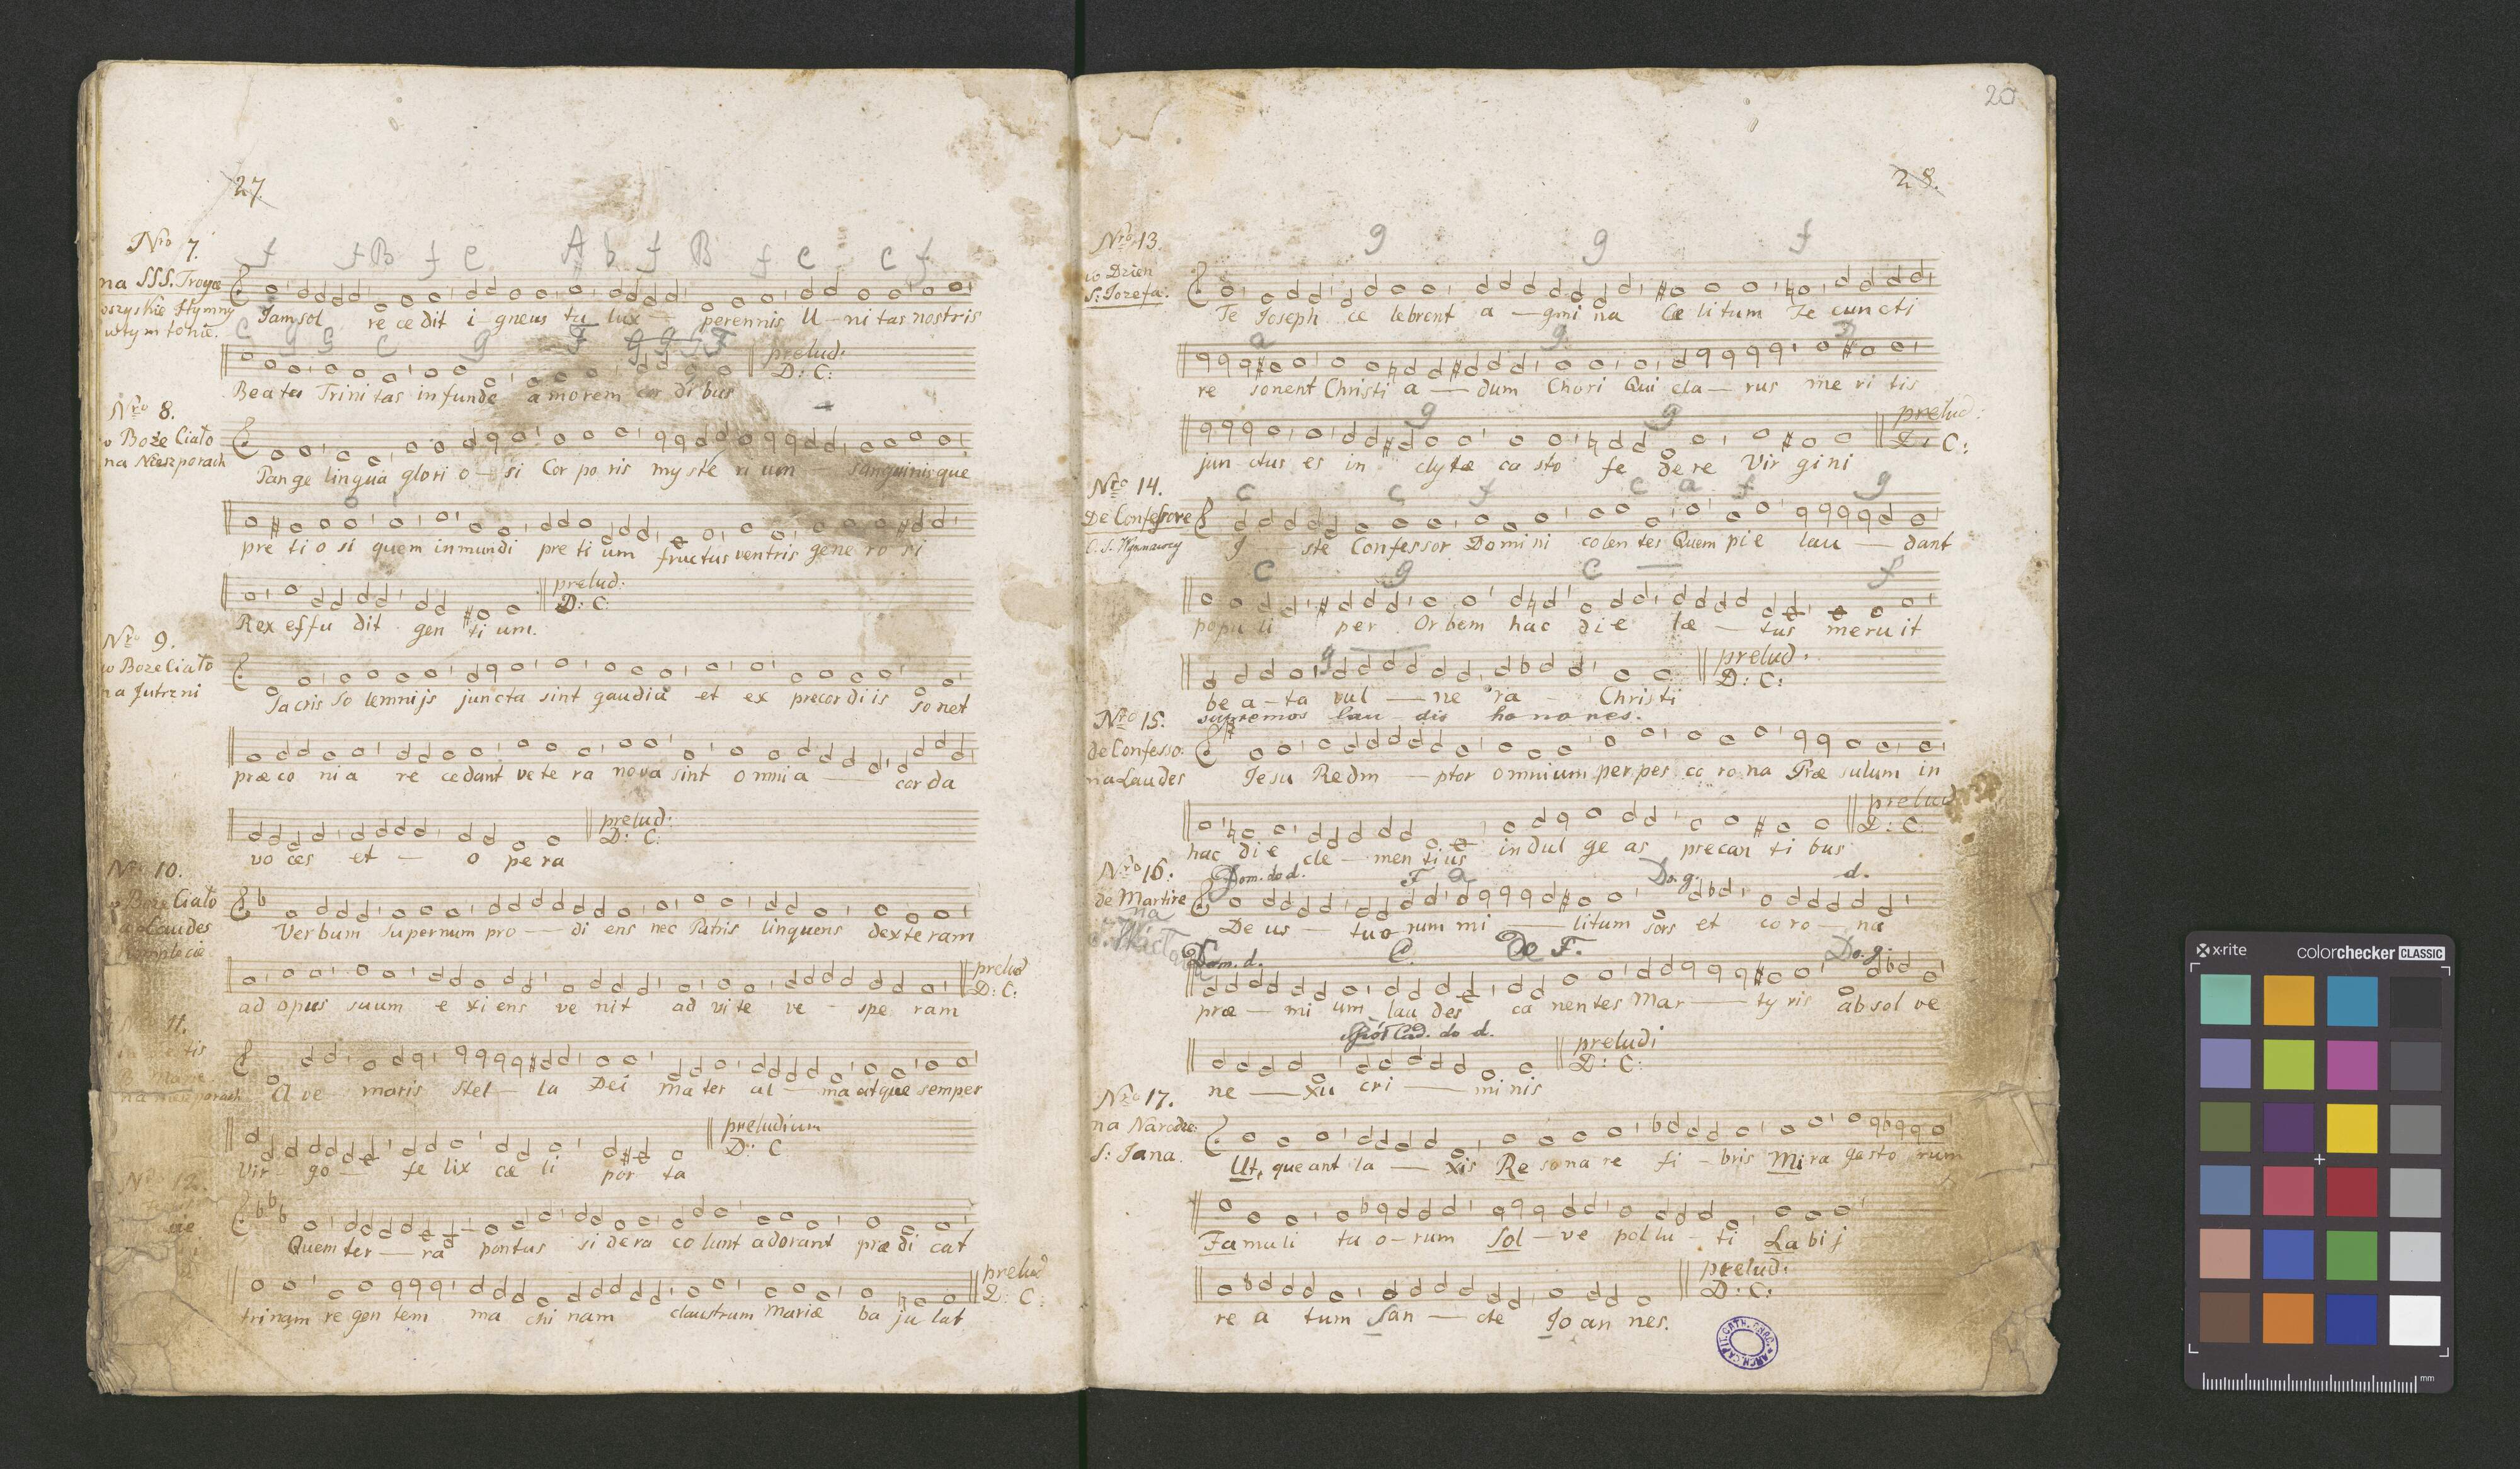 27.
Nro 7.
f f B f c A b f B f c c f
na SSS. Troyce
wszyskie Hymny
w tym tonie.
Iam sol re ce dit i-gneus tu lux — perennis U-ni tas nostris
c g g c g F g g g F
prelud:
D: C:
Beata Trini tas in funde amorem cor di bus
Nro 8.
w Boże Ciało
na Nieszporach
Pange lingua glori o-si Cor po ris my ste ri um — sanguinisque
pre ti o si quem in mundi pre ti um fructus ventris gene ro si
prelud:
D: C:
Rex effu dit gen ti um.
Nro 9.
w Boze Ciało
na Jutrzni
Sacris So lemnijs juncta sint gaudia et ex precordiis sonet
præco nia re cedant vete ra nova sint omnia — corda
prelud:
D: C:
vo ces et — o pe ra
Nro 10.
w Boze Ciało
Laudes
Verbum supernum pro — di ens nec Patris linquens dexteram
prelud
D: C:
ad opus suum e xi ens ve nit ad vi te ve - spe ram
11.
B. Mariæ
na nieszporach
A ve maris Stel — la Dei ma ter al — ma atque semper
preludium
D: C
Vir go — fe lix cæ li por ta
Nro 12.
Quem ter — ra pontus si dera co lunt adorant præ di cat
prelud
D: C:
trinam re gen tem ma chi nam claustrum Mariæ ba ju lat
20
28.
Nro 13.
g g f
w Dzien
S: Iozefa.
Te Ioseph ce lebrent a — gmi na Cæ li tum Te cuncti
a g
re sonent Christi a — dum Chori Qui cla — rus me ri tis
g g
prelud:
D: C:
jun ctus es in clytæ ca sto fe dere Vir gi ni
Nro 14.
c c f c a f g
De Confessore
I — ste Confessor Domini colen tes Quem pie lau — dant
c g c — f
popu li per Orbem hac die læ — tus meruit
g
prelud:
D: C:
be a-ta vul — ne ra - Christi
supremos lau - dis ho no res.
Nro 15.
de Confesso:
na Laudes
Iesu Redm — ptor omnium perpes co ro na Præ sulum in
prelud
D: C:
hac die cle — men tius indul ge as precan ti bus
Nro 16.
Dom. do d. F a Do. g. d.
de Martire
na
De us — tuo rum mi — litum sors et co ro — na
Dom. d. C. Do F. Do. g.
præ — mi um lau des ca nentes Mar — ty ris absol ve
Cad. do d.
preludi
D: C:
ne — xu cri — mi nis
Nro 17.
na Narodze:
S: Jana.
Ut, queant la — xis Re sona re fi - bris Mira gesto rum
Famuli tu o-rum Sol — ve pol lu - ti La bi j
prelud:
D: C:
re a tum San — cte Jo an nes.
x·rite colorchecker CLASSIC
mm